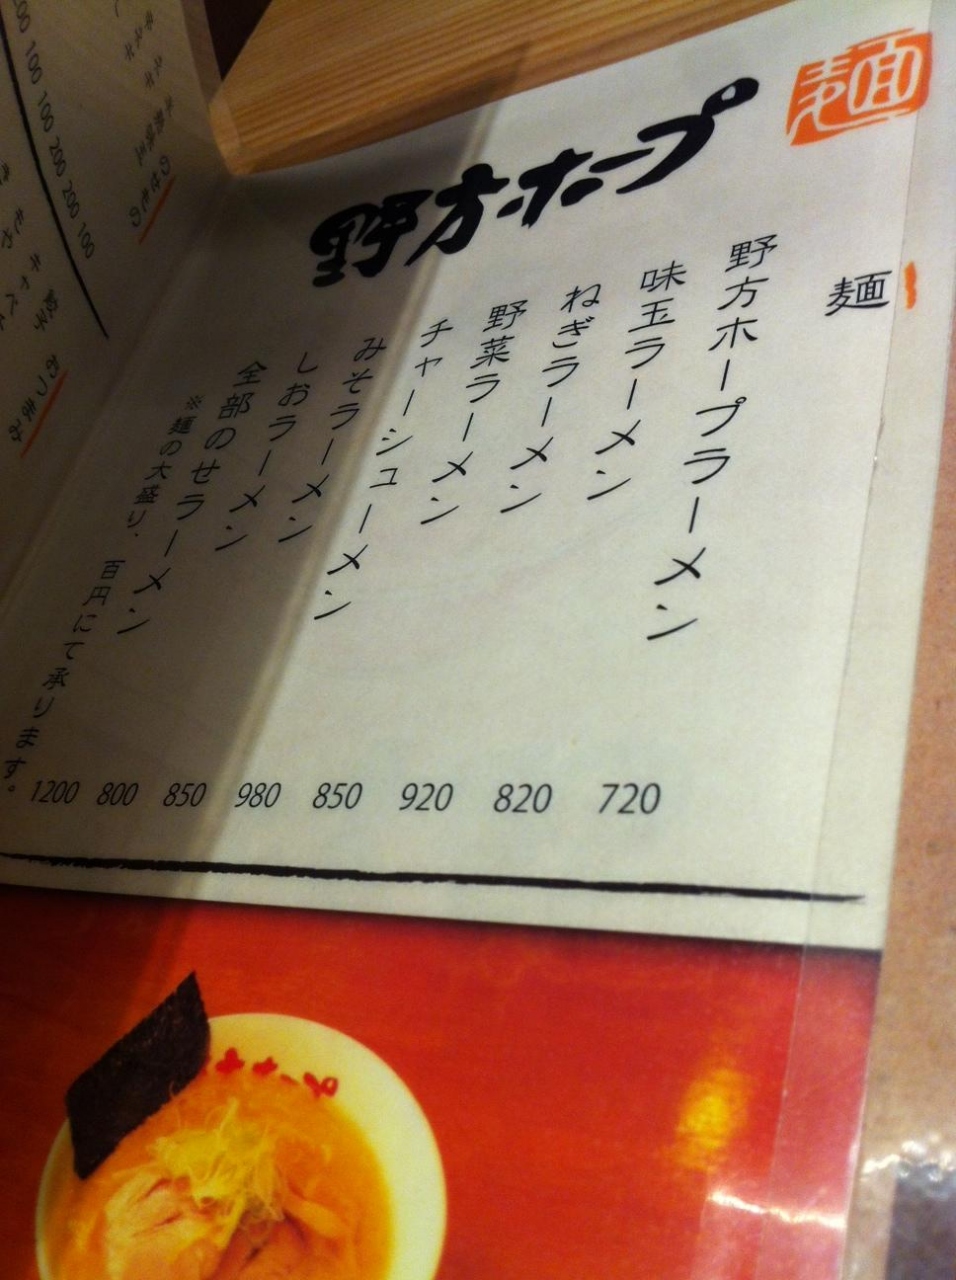 麺
野方ホープ
麺
野方ホープラーメン 720
味玉ラーメン 820
ねぎラーメン 920
野菜ラーメン 850
チャーシューメン 980
みそラーメン 850
しおラーメン 800
全部のせラーメン 1200
※麺の大盛り、百円にて承ります。
100
100
200
200
100
ホープ